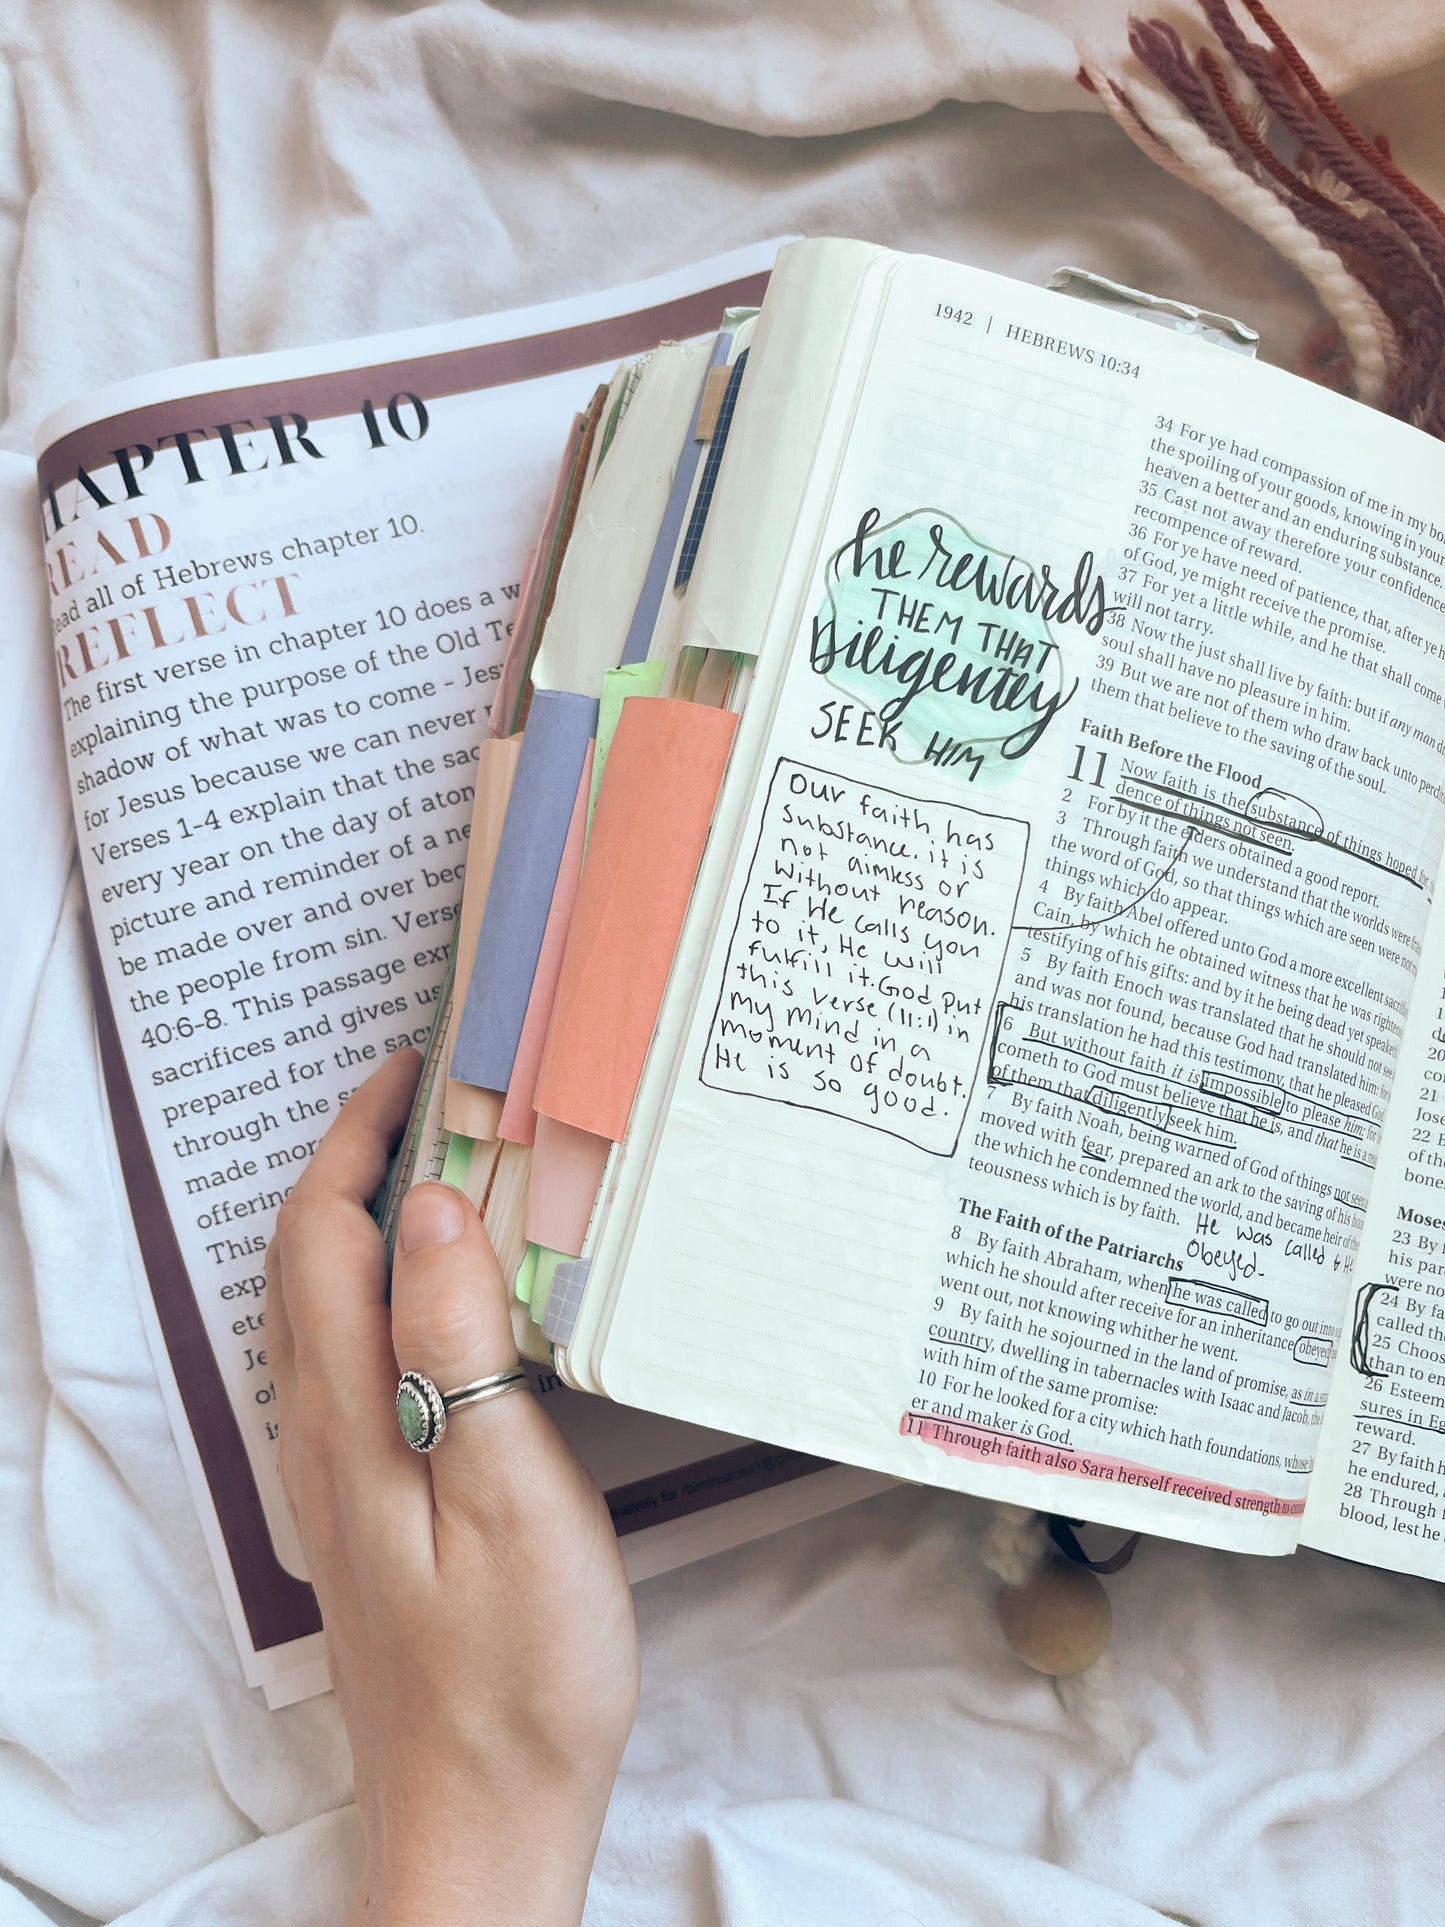 CHAPTER 10
READ
Read all of Hebrews chapter 10.
REFLECT
The first verse in chapter 10 does a
explaining the purpose of the Old
shadow of what was to come -
for Jesus because we can never
Verses 1-4 explain that the
every year on the day of
picture and reminder of a
be made over and over
the people from sin.
40:6-8. This passage
sacrifices and gives us
prepared for the
through the
made
This
of
in
1942 | HEBREWS 10:34
he rewards
THEM THAT
Diligentey
SEEK HIM
Our faith has
substance. it is
not aimless or
without reason.
If He calls you
to it, He will
fulfill it. God put
this verse (11:1) in
my mind in a
moment of doubt.
He is so good.
34 For ye had compassion of me in my
the spoiling of your goods, knowing in your
heaven a better and an enduring substance.
35 Cast not away therefore your confidence
recompence of reward.
36 For ye have need of patience, that, after ye
of God, ye might receive the promise.
37 For yet a little while, and he that shall come
will not tarry.
38 Now the just shall live by faith: but if any man
soul shall have no pleasure in him.
39 But we are not of them who draw back unto
them that believe to the saving of the soul.
Faith Before the Flood
11 Now faith is the substance of things hoped for,
dence of things not seen.
2 For by it the elders obtained a good report.
3 Through faith we understand that the worlds were
the word of God, so that things which are seen were not
things which do appear.
4 By faith Abel offered unto God a more excellent
Cain, by which he obtained witness that he was
testifying of his gifts: and by it he being dead yet
5 By faith Enoch was translated that he should not see
and was not found, because God had translated him: for
his translation he had this testimony, that he pleased God.
6 But without faith it is impossible to please him: for
cometh to God must believe that he is, and that he is a
of them that diligently seek him.
7 By faith Noah, being warned of God of things not seen
moved with fear, prepared an ark to the saving of his
the which he condemned the world, and became heir of the
teousness which is by faith.
He was called & He
obeyed.
The Faith of the Patriarchs
8 By faith Abraham, when he was called to go out into
which he should after receive for an inheritance, obeyed
went out, not knowing whither he went.
9 By faith he sojourned in the land of promise, as in a
country, dwelling in tabernacles with Isaac and Jacob, the
with him of the same promise:
10 For he looked for a city which hath foundations, whose
er and maker is God.
11 Through faith also Sara herself received strength to
20
21
22
of the
bone
Moses
23 By
his
were no
24 By fa
called the
25 Choos
than to en
26 Esteem
sures in Eg
reward.
27 By faith
he endured,
28 Through
blood, lest he